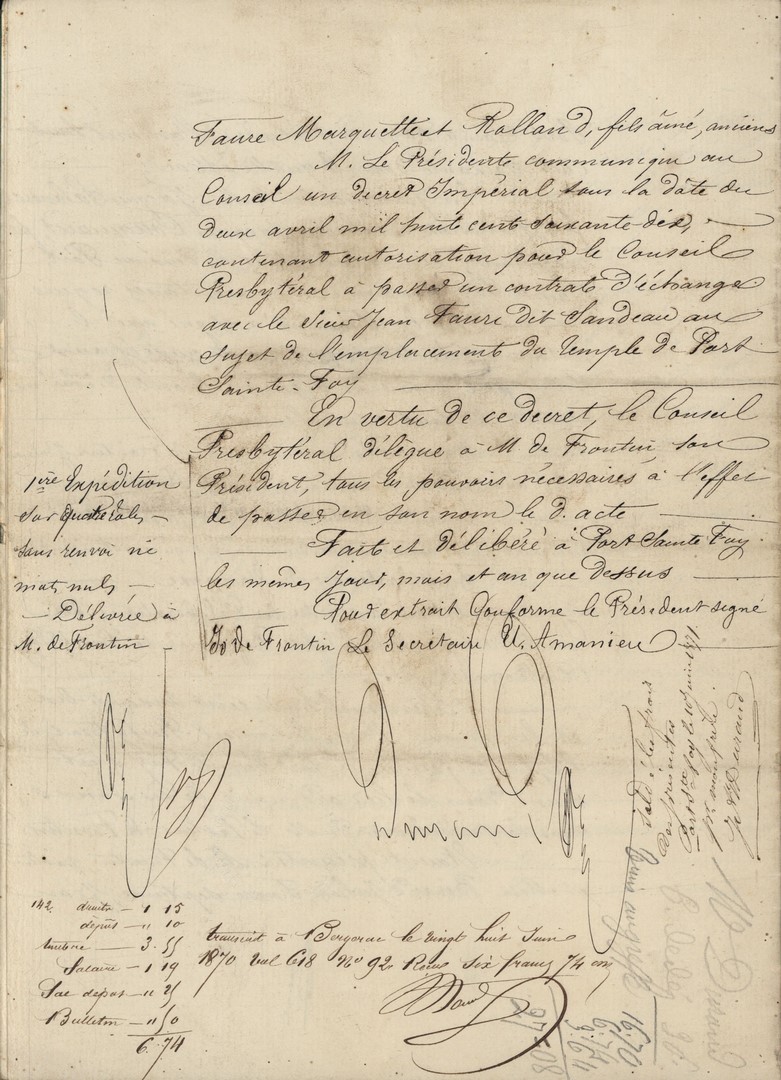 Faure Marquette et Rolland, fils aîné, anciens
M. Le Présidente communique au
Conseil un decret Impérial sous la dâte du
deux avril mil huit cent soixante dix,
contenant autorisation pour le Conseil
Presbytéral à passer un contrat d'échange
avec le sieur Jean Faure dit Sandeau au
sujet de l'emplacement du Temple de Port
Sainte-Foy
En vertu de ce decret, le Conseil
Presbytéral délègue à M de Frontin, son
Président, tous les pouvoirs nécessaires à l'effet
de passer en son nom le d. acte
Fait et délibéré à Port Sainte Foy
les mêmes jour, mois et an que dessus
Pour extrait Conforme le Président signé
de Frontin Le Secrétaire U. Amanieu
1ère Expédition
sur quatre rôles
sans renvoi ni
mots nuls
Délivrée à
M. de Frontin
Soldé les frais
des présentes
Port Ste Foy le 10 juin 1871.
Durand
142. droits — 1 15
dépôt — " 10
timbre — 3. 55
Salaire — 1 19
dépôt — " 25
Bulletin — " 50
6. 74
transcrit à Bergerac le vingt huit Juin
1870 vol 618 No 92. Reçu six francs 74 cs
16.70
6.74